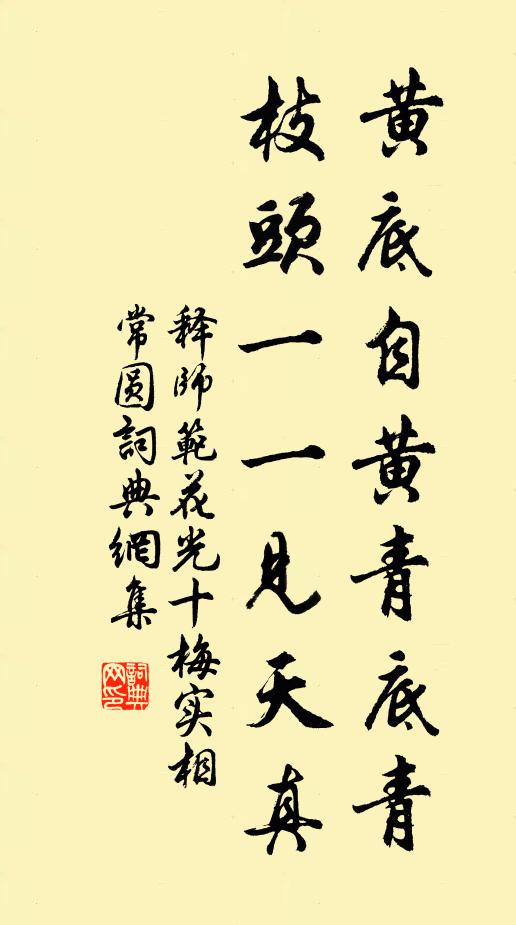 黄底自黄青底青
枝頭一一見天真
释師範花光十梅实相
常圆詞典網集
詞典网印